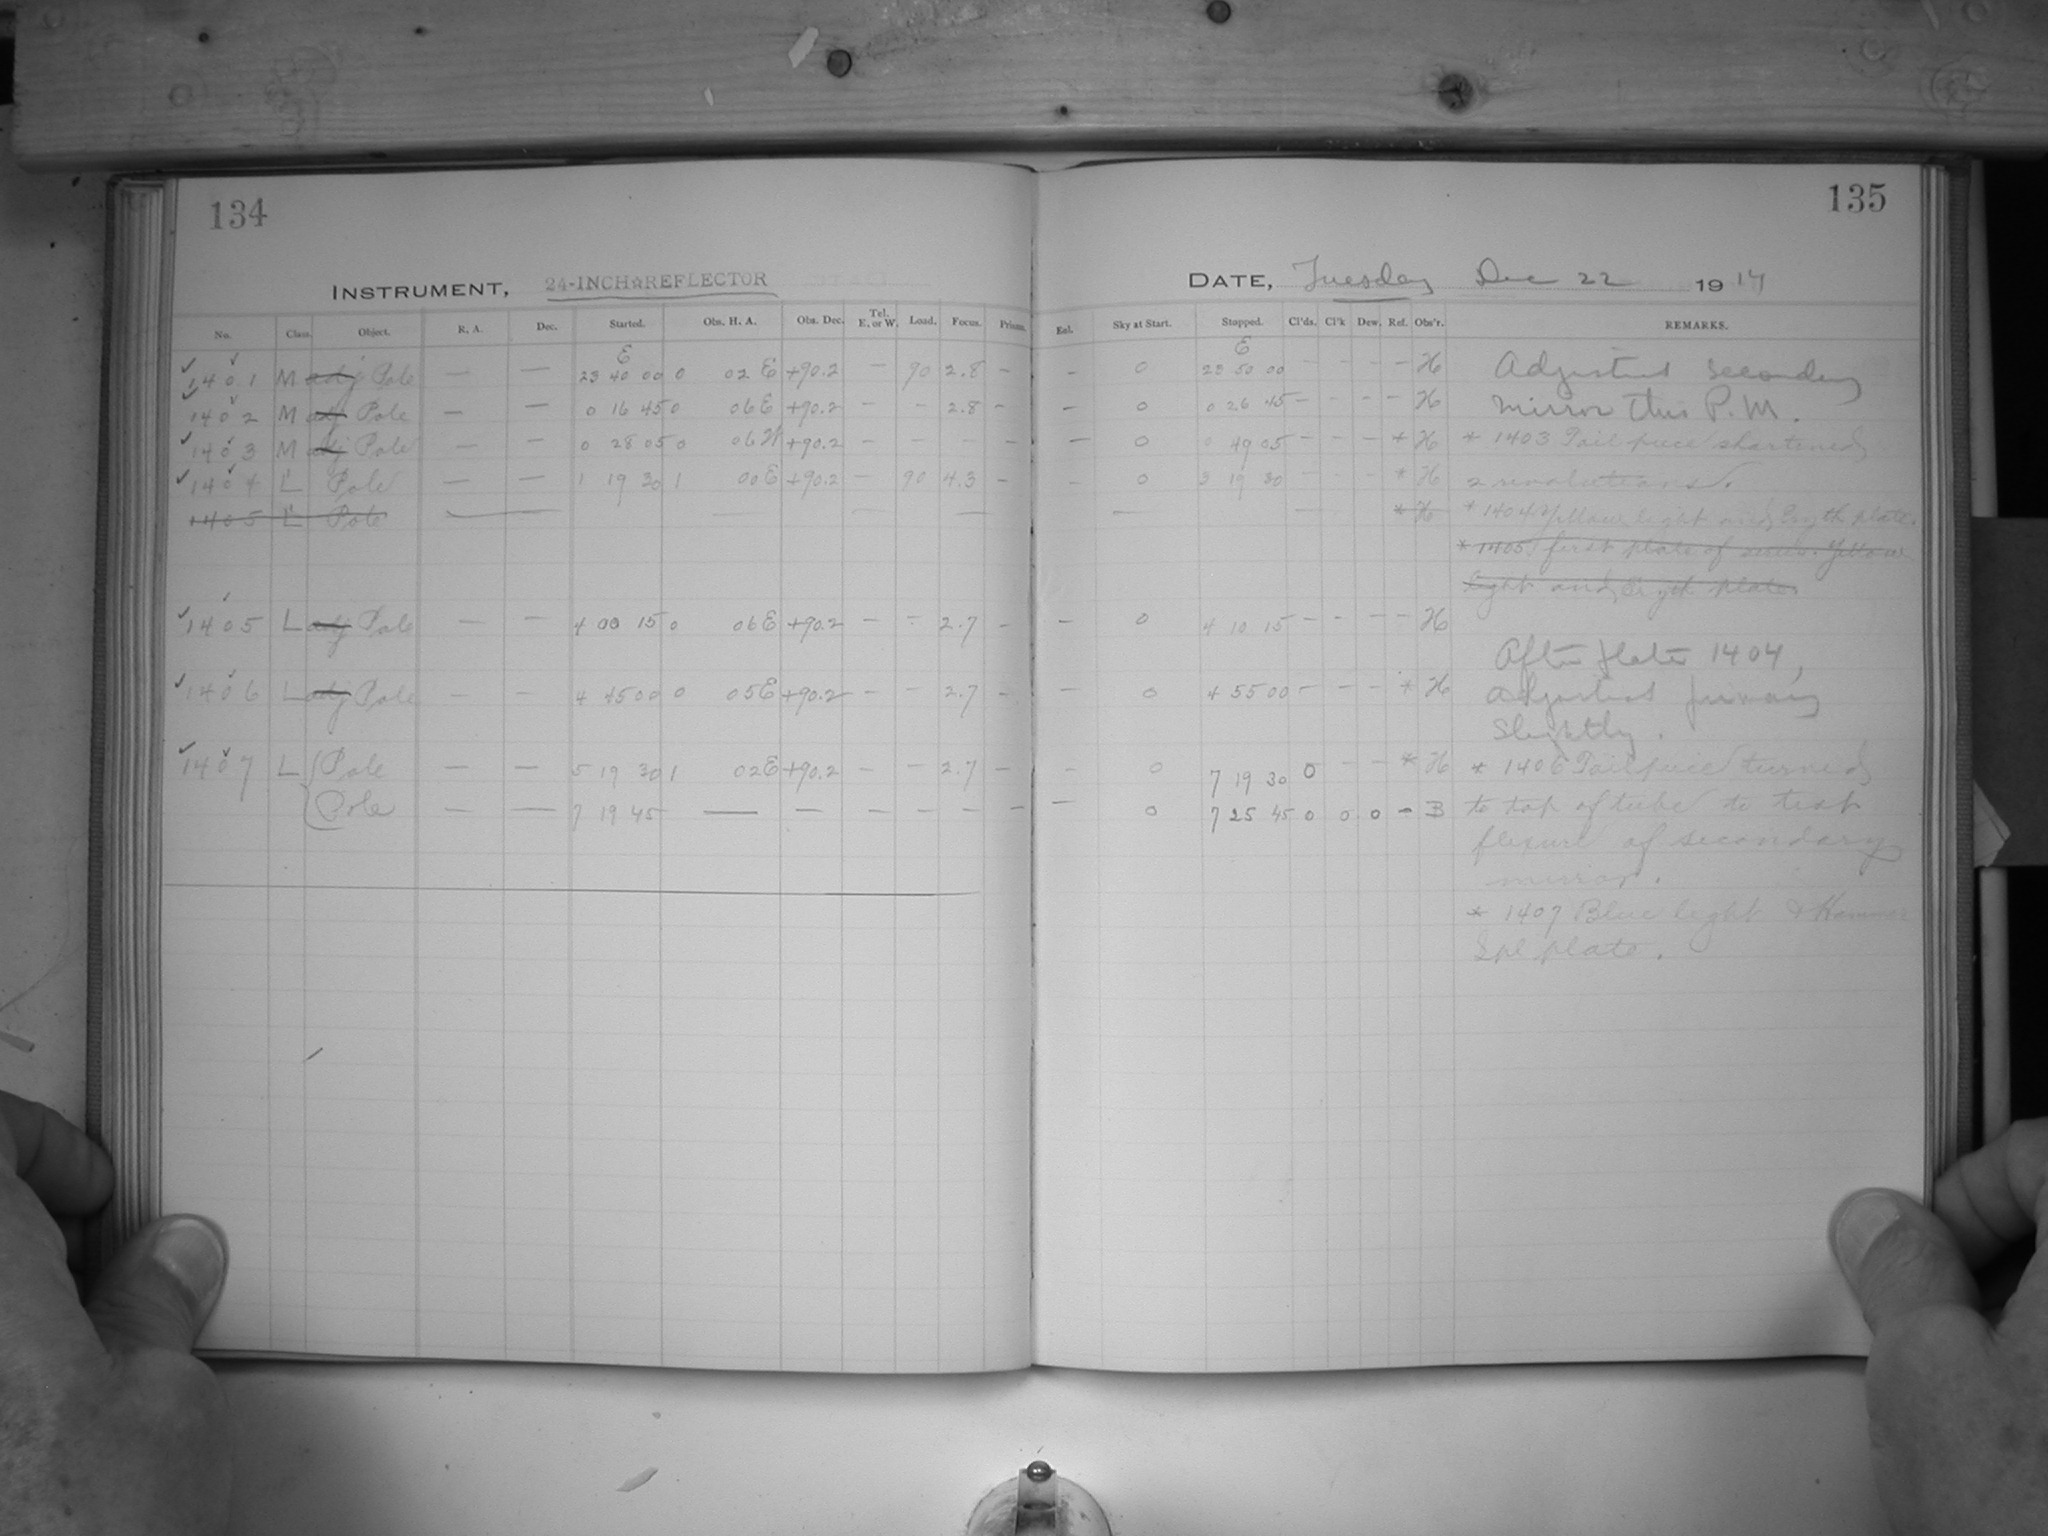 134
INSTRUMENT, 24-INCH☆REFLECTOR
No. Class. Object. R. A. Dec. Started. Obs. H. A. Obs. Dec. Tel. E. or W. Load. Focus. Prisms.
E
1401 M adj Pole — — 23 40 00 0 02 E +90.2 — 90 2.8 —
1402 M adj Pole — — 0 16 45 0 06 E +90.2 — — 2.8 —
1403 M adj Pole — — 0 28 05 0 06 W +90.2 — — — —
1404 L Pole — — 1 19 30 1 00 E +90.2 — 90 4.3 —
1405 L Pole
1405 L adj Pole — — 4 00 15 0 06 E +90.2 — — 2.7 —
1406 L adj Pole — — 4 45 00 0 05 E +90.2 — — 2.7 —
1407 L Pole — — 5 19 30 1 02 E +90.2 — — 2.7 —
Pole — — 7 19 45 — — — — — —
135
DATE, Tuesday Dec 22 1914
Eel. Sky at Start. Stopped. Cl'ds. Cl'k Dew. Ref. Obs'r. REMARKS.
E
— 0 23 50 00 — — — — H Adjusted secondary
— 0 0 26 45 — — — — H mirror this P.M.
— 0 0 49 05 — — — * H * 1403 Tail piece shortened
— 0 3 19 30 — — — * H 2 revolutions.
* H * 1404 Yellow light and Eryth plate.
* 1405 first plate of series. Yellow
light and Eryth plate.
— 0 4 10 15 — — — — H
After plate 1404,
— 0 4 55 00 — — — * H adjusted
slightly.
— 0 7 19 30 0 — — * H * 1406 Tail piece turned
— 0 7 25 45 0 0 0 — B to top of tube to test
flexure of secondary
mirror.
* 1407 Blue light & Hammer
Spl plate.